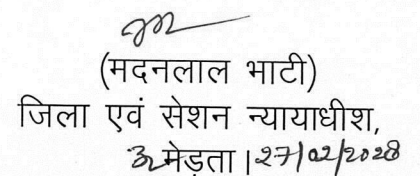 (मदनलाल भाटी)
जिला एवं सेशन न्यायाधीश,
मेड़ता।27/02/2028